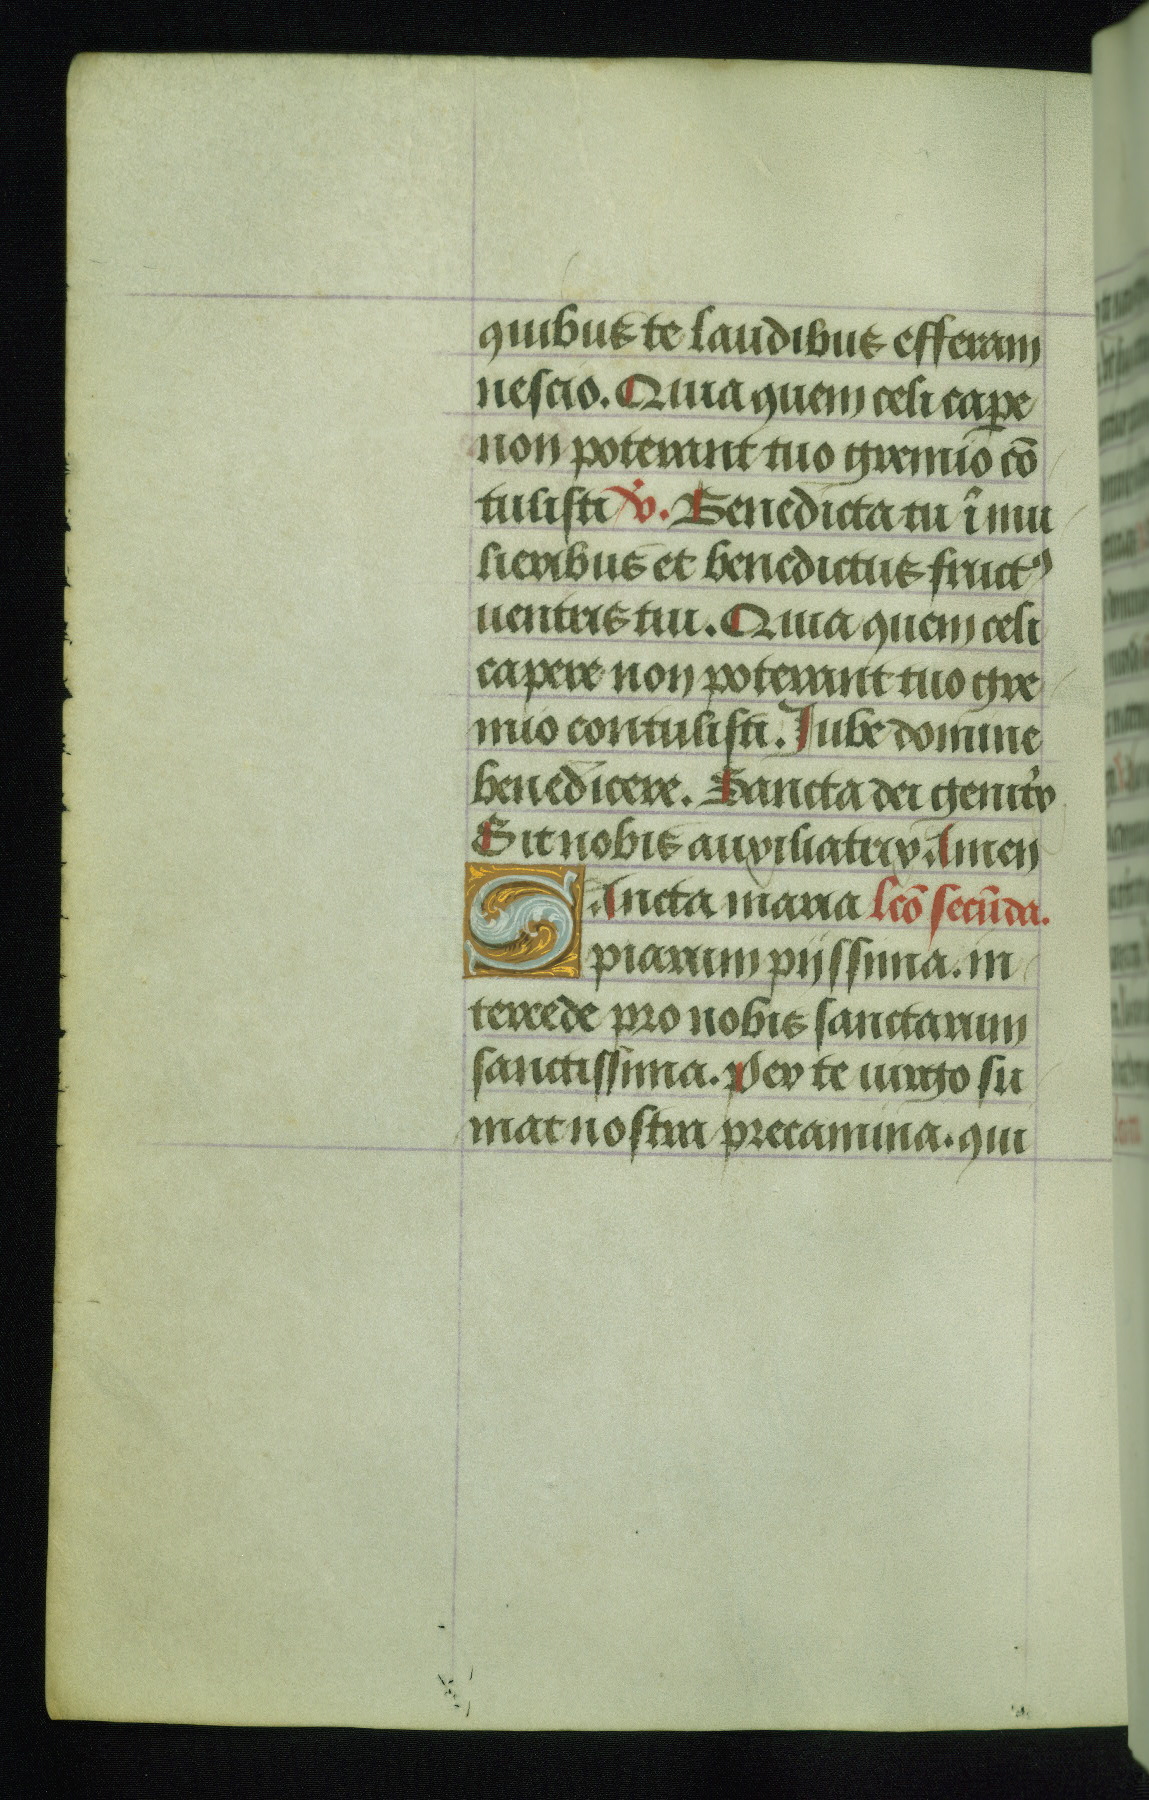 quibus te laudibus efferam
nescio. Quia quem celi cape
non poterant tuo gremio cō
tulisti v̇. Benedicta tu ī mu
lieribus et benedictus fructꝰ
uentris tui. Quia quem celi
capere non poterant tuo gre
mio contulisti. Iube domine
benedicere. Sancta dei genitͥx
Sit nobis auxiliatrix. Amen
SAncta maria lcō secūda.
piarum piissima. in
tercede pro nobis sanctarum
sanctissima. Per te uirgo su
mat nostra precamina. qui